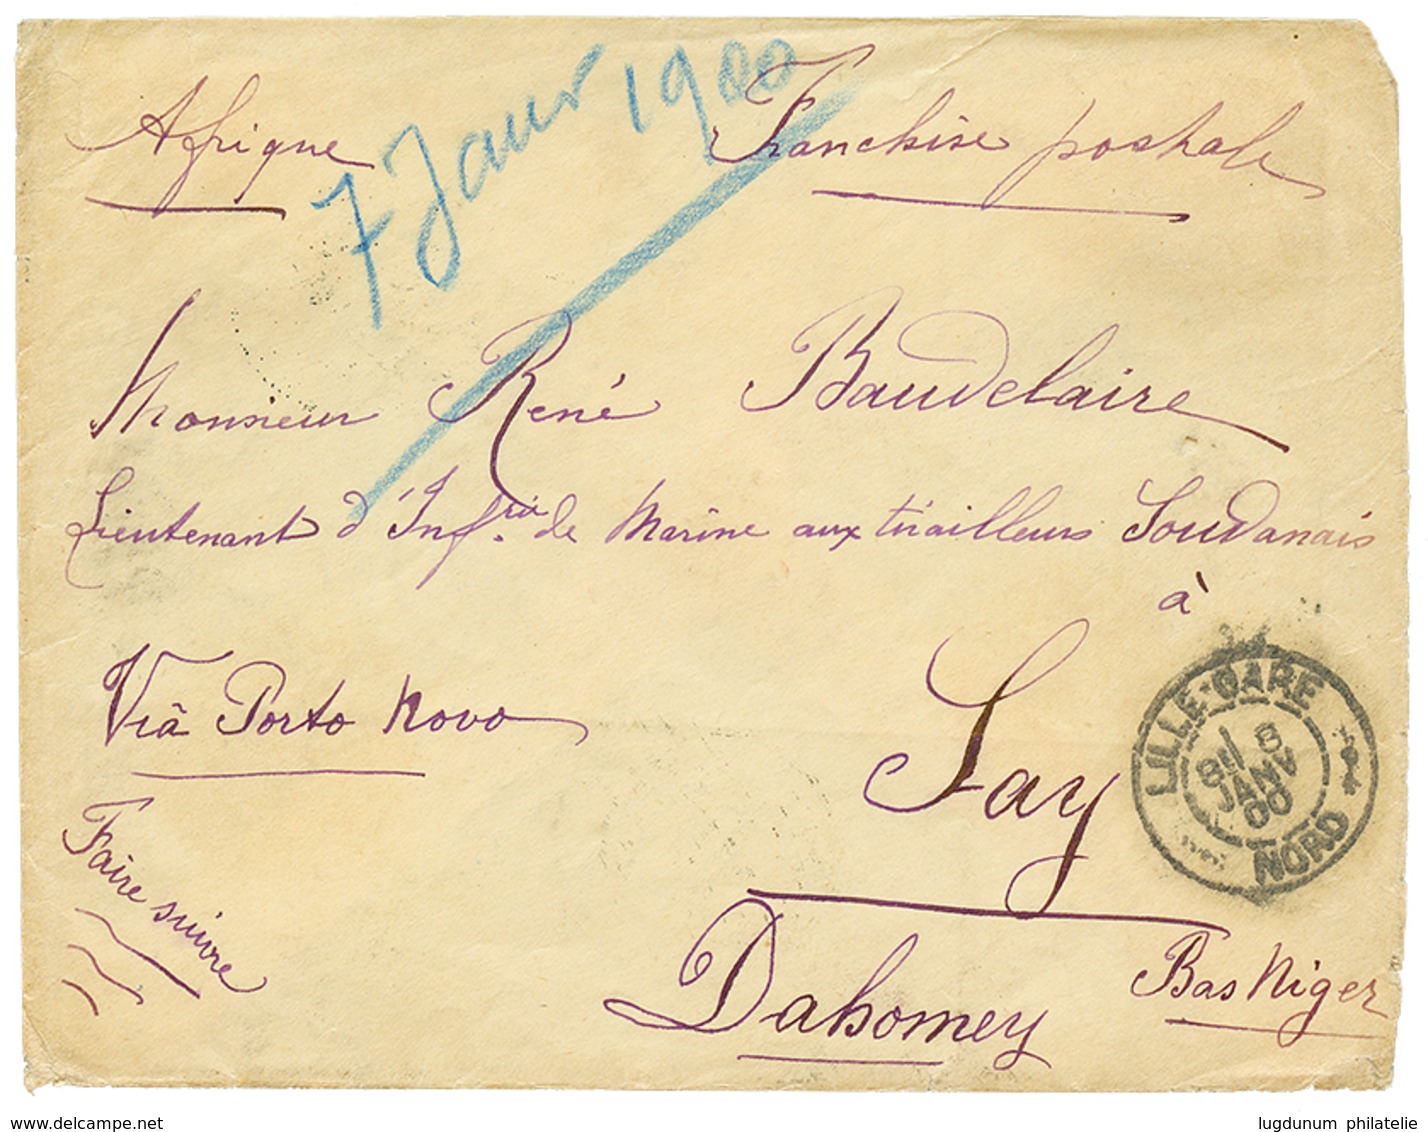 Afrique
7 Janv 1900
Franchise postale
Monsieur René Baudelaire
Lieutenant d'Inf.rie de Marine aux tirailleurs Soudanais
à
Say
Viâ Porto Novo
Faire suivre
Dahomey
Bas Niger
LILLE-GARE
8
JANV
00
NORD
www.delcampe.net
lugdunum philatelie